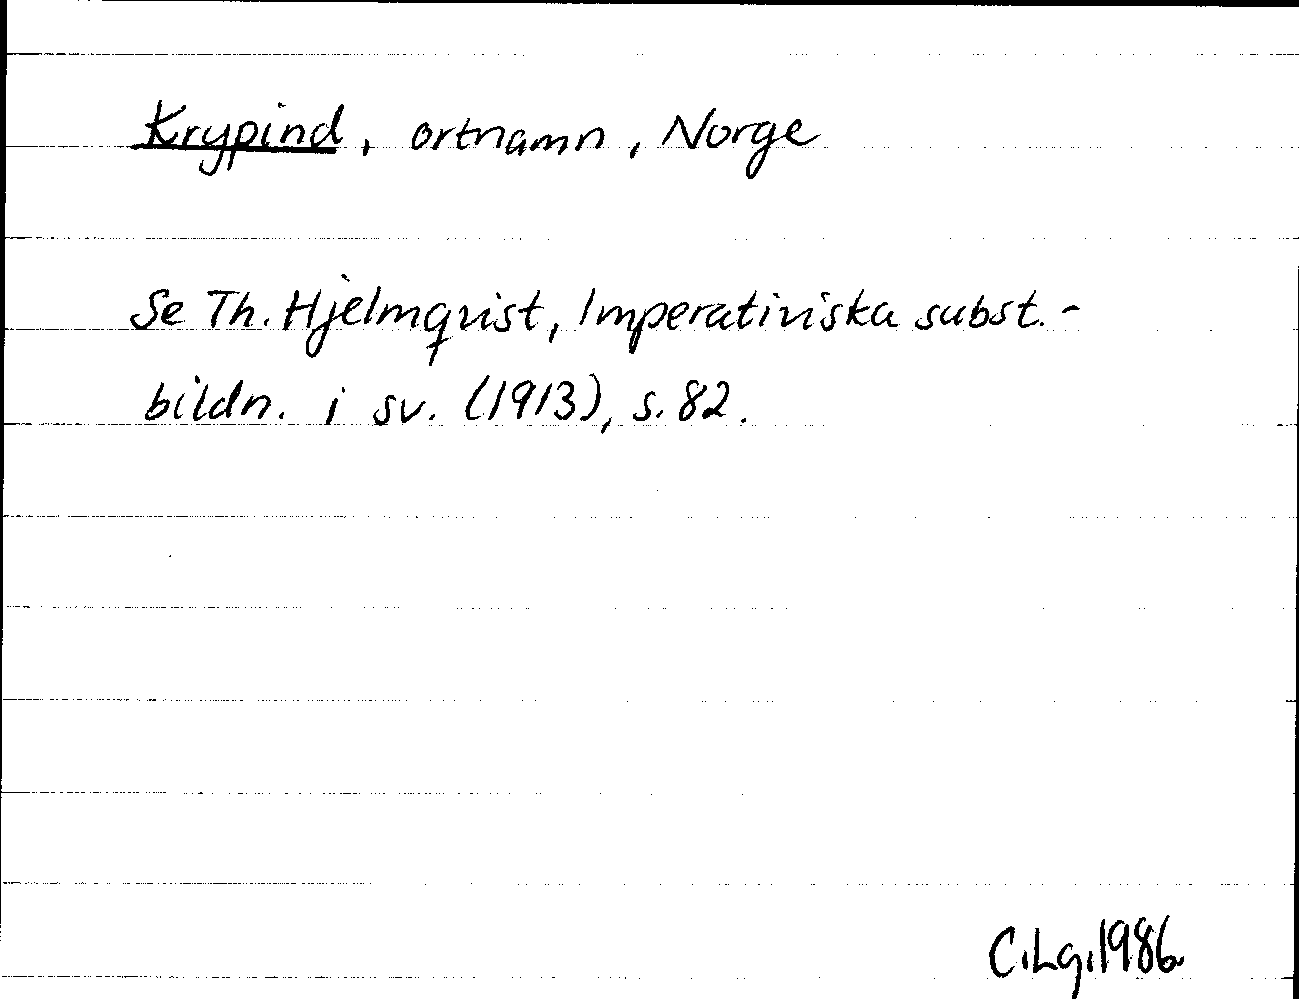 Krypind, ortnamn, Norge
Se Th. Hjelmqvist, Imperativiska subst.-
bildn. i sv. (1913), s. 82.
C.Lg.1986